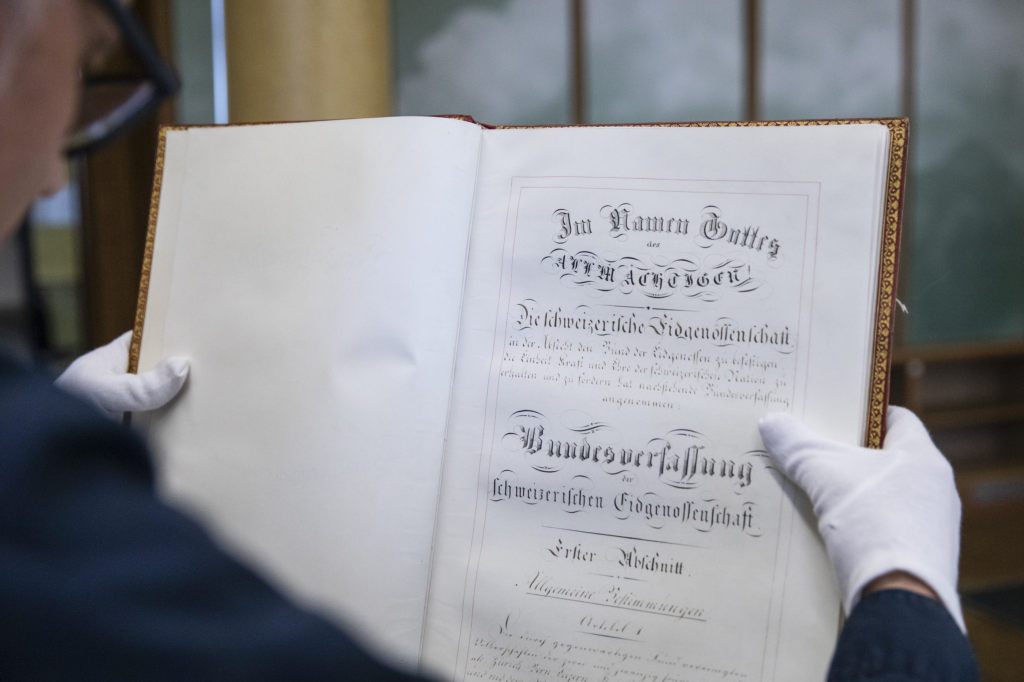 Im Namen Gottes
des
ALLMÄCHTIGEN!
Die schweizerische Eidgenossenschaft,
in der Absicht den Bund der Eidgenossen zu befestigen,
die Einheit Kraft und Ehre der schweizerischen Nation zu
erhalten und zu fördern hat nachstehende Bundesverfassung
angenommen:
Bundesverfassung
der
schweizerischen Eidgenossenschaft.
Erster Abschnitt.
Allgemeine Bestimmungen
Artikel 1
Die durch gegenwärtigen Bund vereinigten
Völkerschaften der zwei und zwanzig
als Zürich Bern Luzern
und